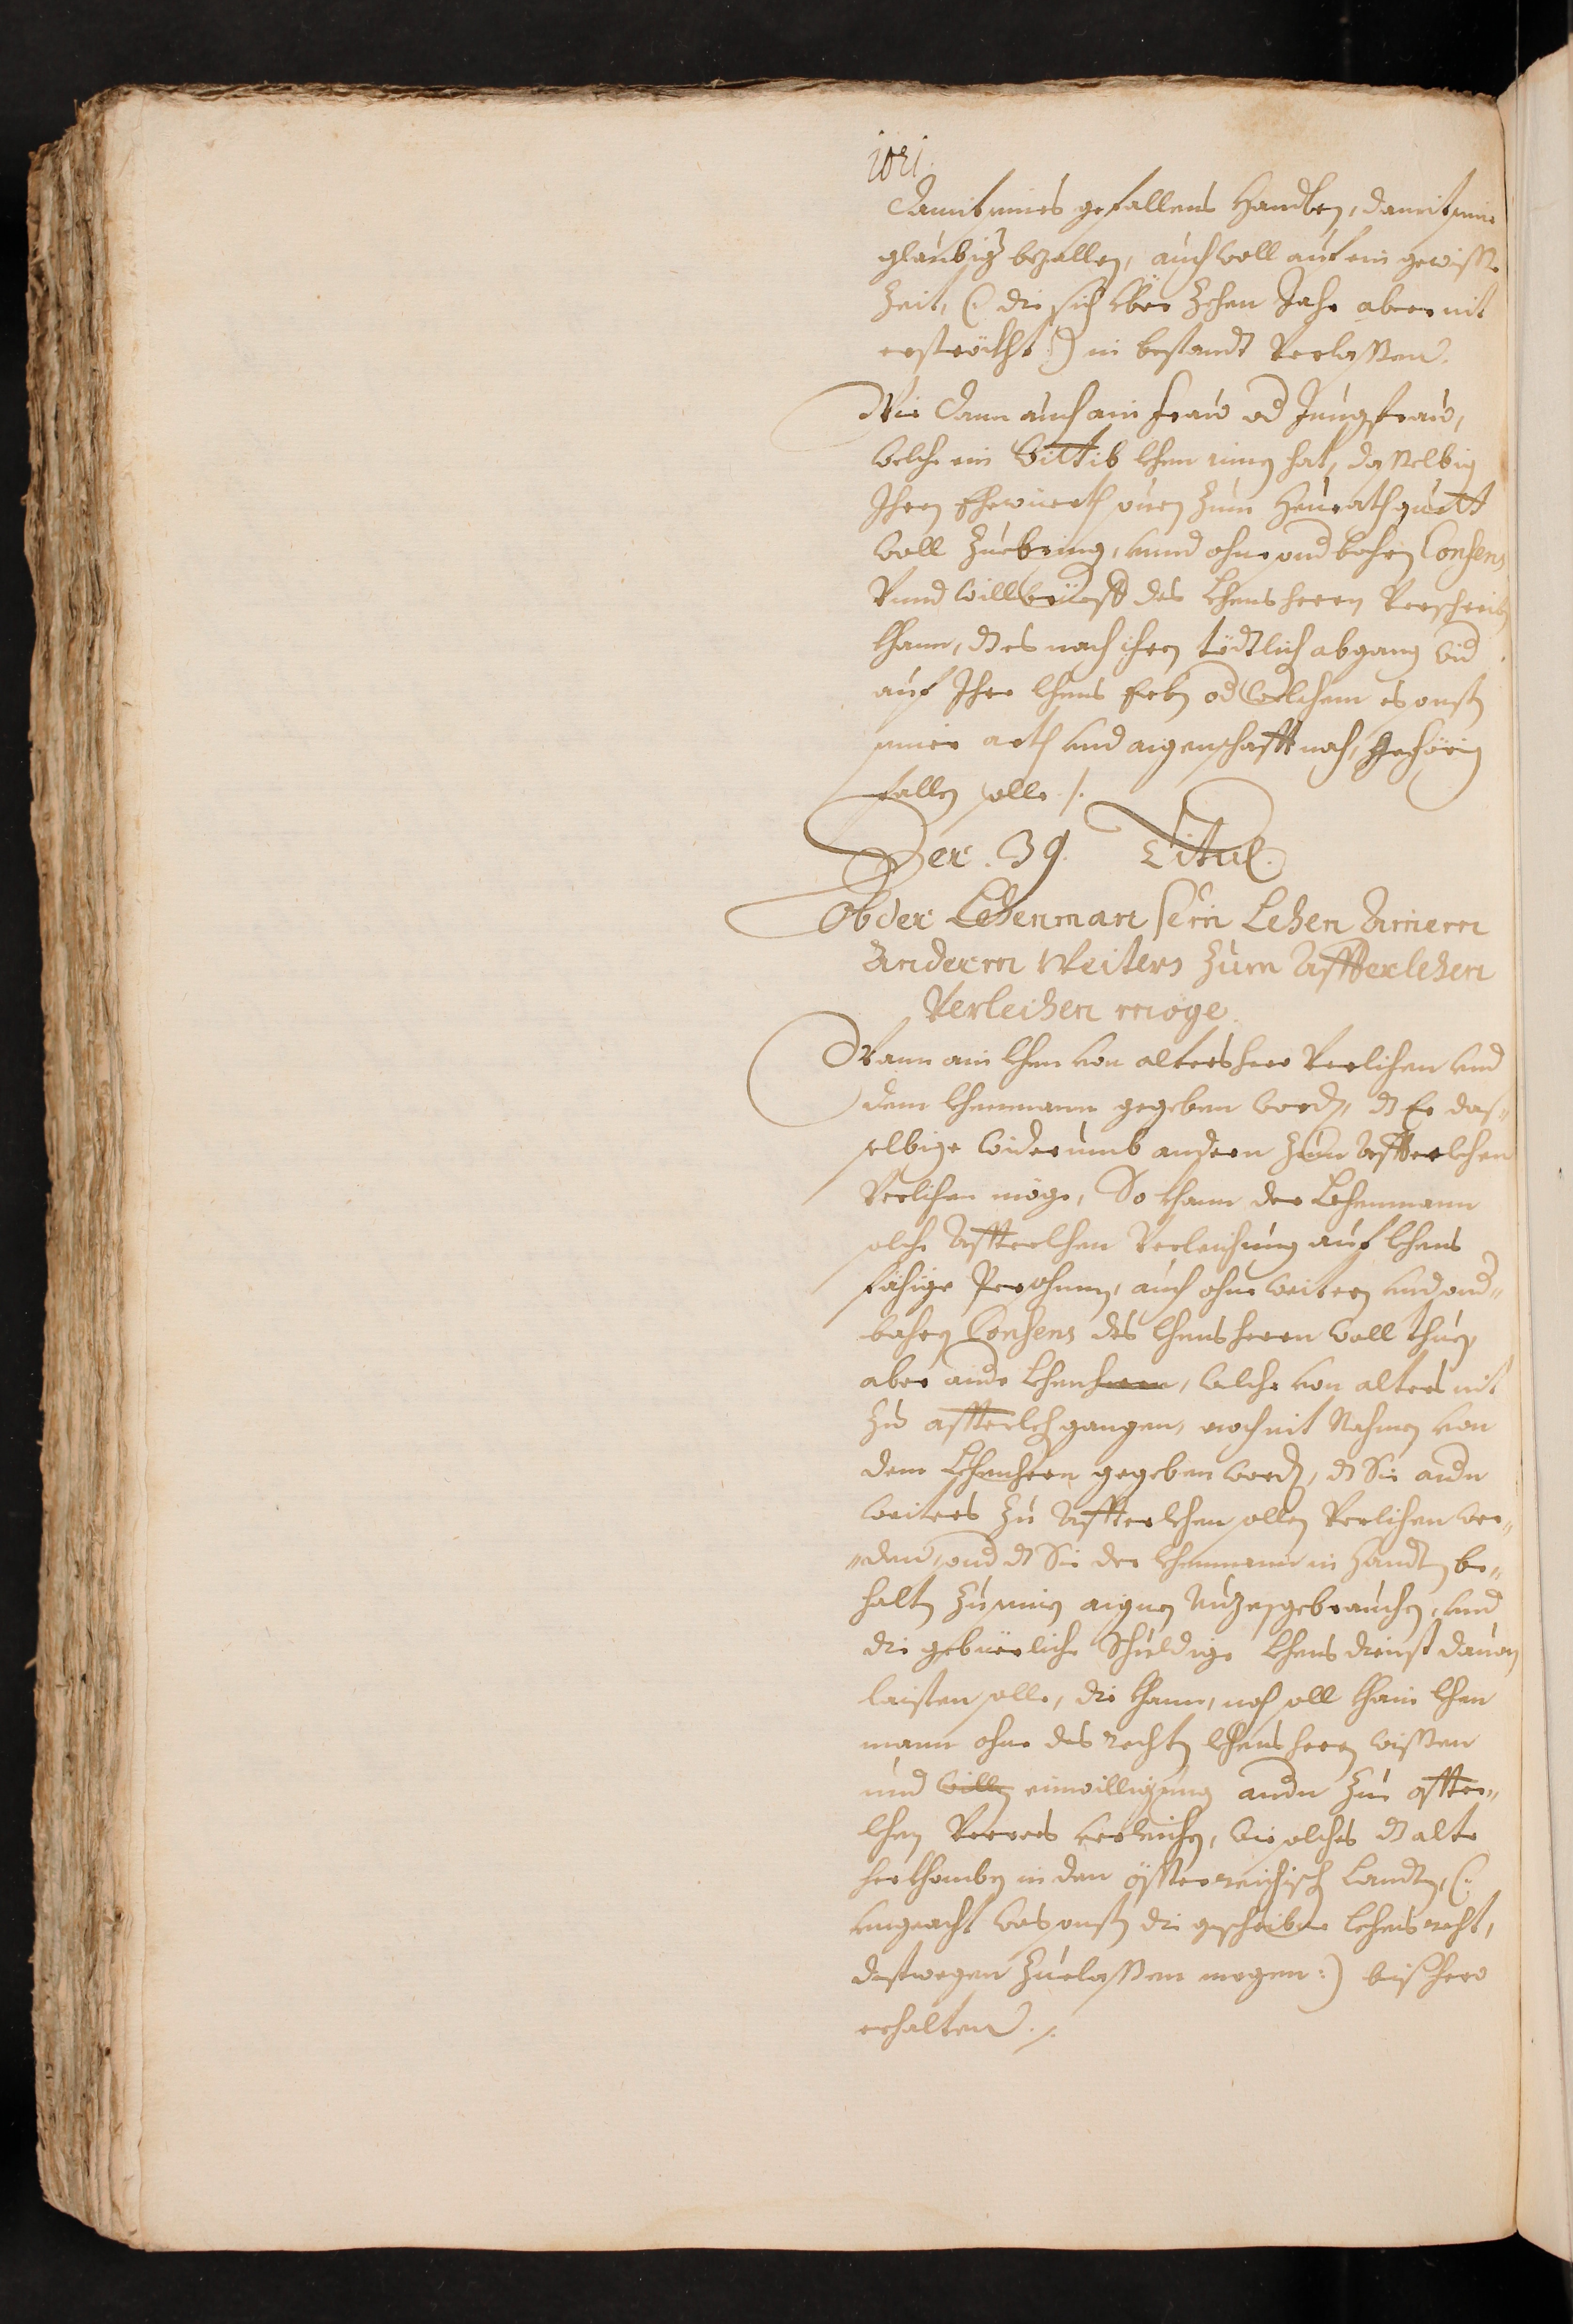 damit seines gefallens handlen, damit seine
glaubiger bezallen, auch woll auf ein gewisse
Zeit, (: die sich über Zehen Jahr aber nit
erströckht :) in bestandt verlassen.
Wie dann auch ain Fraw od Jungfraw,
welche ein lehen innen hat, dasselbig
Ihren Ehewierth Zum Heurathguett
woll Zuebringen, unnd ohne sonderbahren Consens
Vnnd willkhür des Lehensherrn Verschreiben
khann, dz es nach ihren tödtlich abgang wider
auf Ihre lehens Erben od welchem es sonsten
seiner arth und aigenschafft nach, gehörig
fallen solle ./.
Der . 39. Titul.
Ob der Lehenman sein Lehen Ainem
Anderm Weiters zum Affterlehen
Verleihen möge.
Wann ain lehen von alters hero Verlihen und
dem lehenmann gegeben worden, dz Er das„
selbige widerumb andern zum Affterlehen
Verlihen möge, So khann der Lehenmann
solche Affterlehen Verleihung auf lehens
fähige Persohnen, auch ohne weitern und sonder„
bahren Consens des lehensherrn woll thuen,
aber andere lehen, welche von alters nit
Zu affterlehen gangen, noch mit Nahmen von
dem Lehenherrn gegeben worden, dz Sie andern
weiters Zu Affterlehen sollen Verlihen wer„
„den, sond dz Sie der lehenmann in handten be„
halten Zu seinen aignen Nuzen gebrauchen, und
die gebüerliche Schuldige lehens dienst dauon
laisten solle, die khann, noch soll khain lehen
mann ohne des rechten lehensherrn wissen
und willen einwilligung andern Zue affter„
lehen Verrers verleichen, wie solches dz alte
herkhomben in den össterreichisch Landten, (:
ungeacht was sonsten die geschribne lehensrecht,
destwegen Zuelassen mogen :) bisshero
erhalten ./.